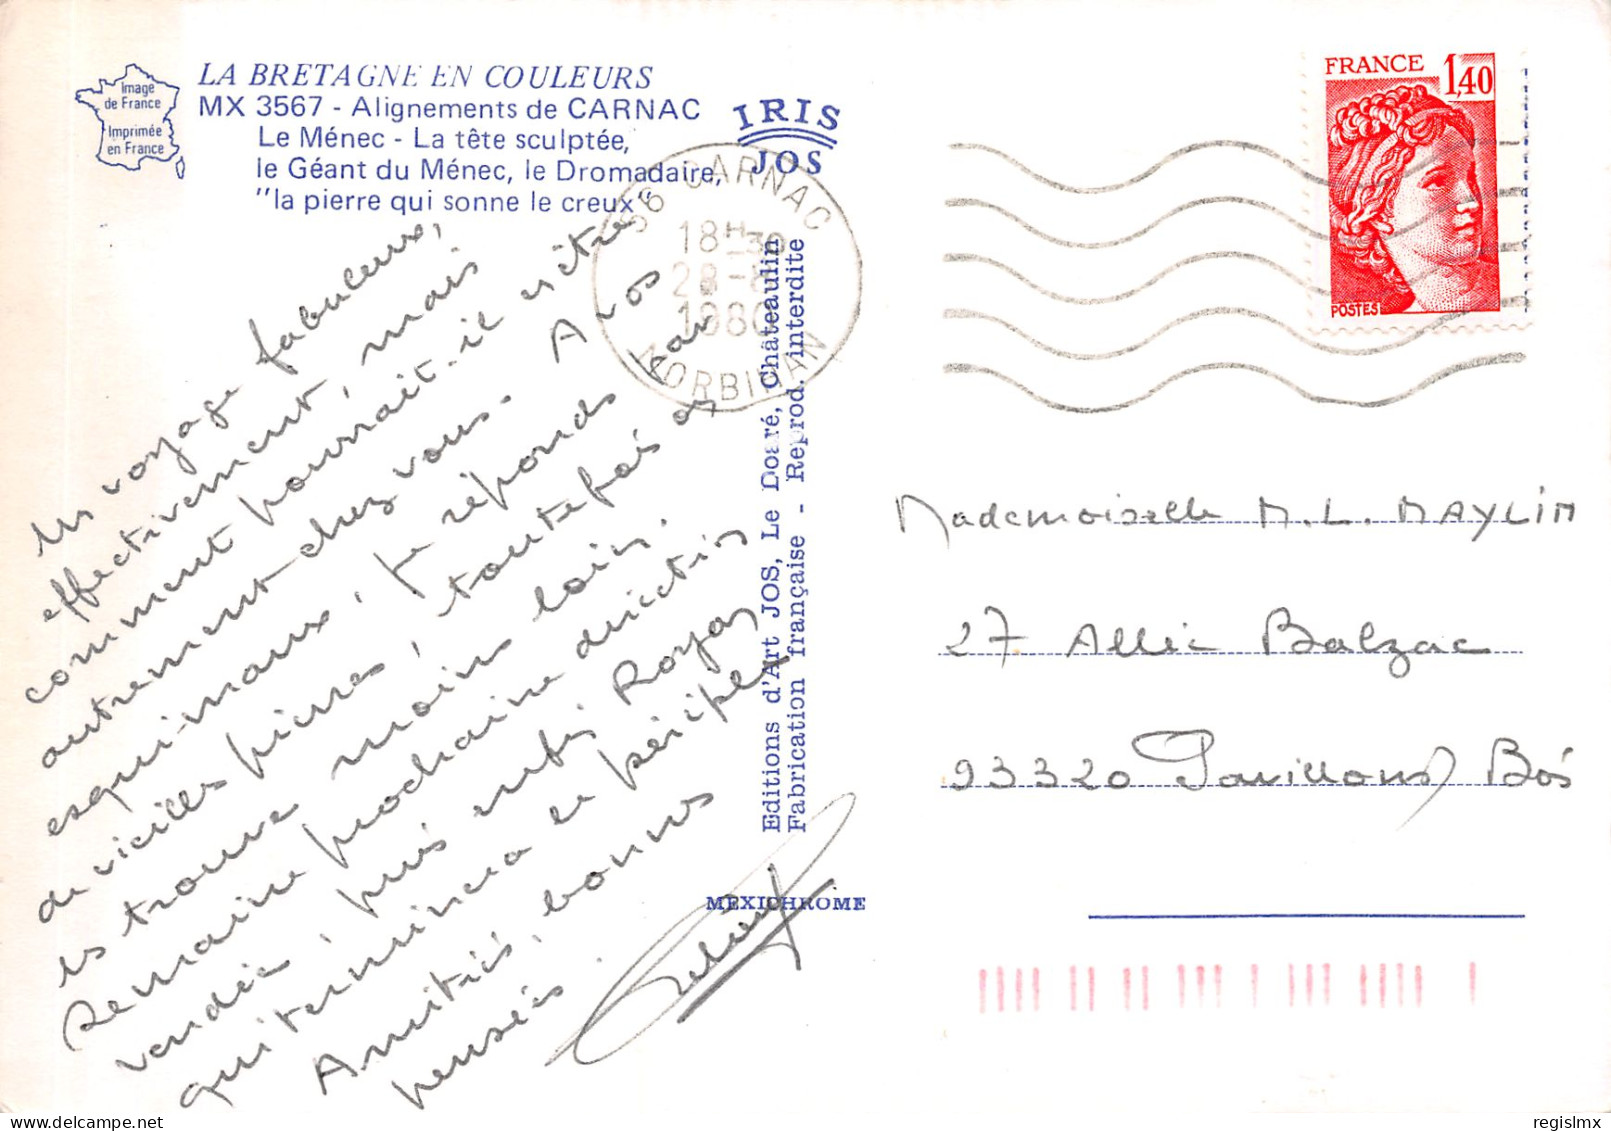 Image
de France
Imprimée
en France
LA BRETAGNE EN COULEURS
MX 3567 - Alignements de CARNAC
Le Ménec - La tête sculptée,
le Géant du Ménec, le Dromadaire,
"la pierre qui sonne le creux"
IRIS
JOS
56 CARNAC
18H30
28-8
1980
MORBIHAN
FRANCE
1,40
POSTES
voyage fabuleux,
effectivement, mais
comment pourrait-il en être
autrement chez vous. A vos
esquimaux, je réponds par
de vieilles pierres, toutefois on
les trouve moins loin.
Semaine prochaine direction
vendée, puis enfin Royan
qui terminera le périple
Amitiés, bonnes
pensées.
Editions d'Art JOS, Le Doaré, Châteaudin
Fabrication française - Reprod. interdite
MEXICHROME
Mademoiselle M. L. MAYLIN
27 Allée Balzac
93320 Pavillons/Bois
regislmx